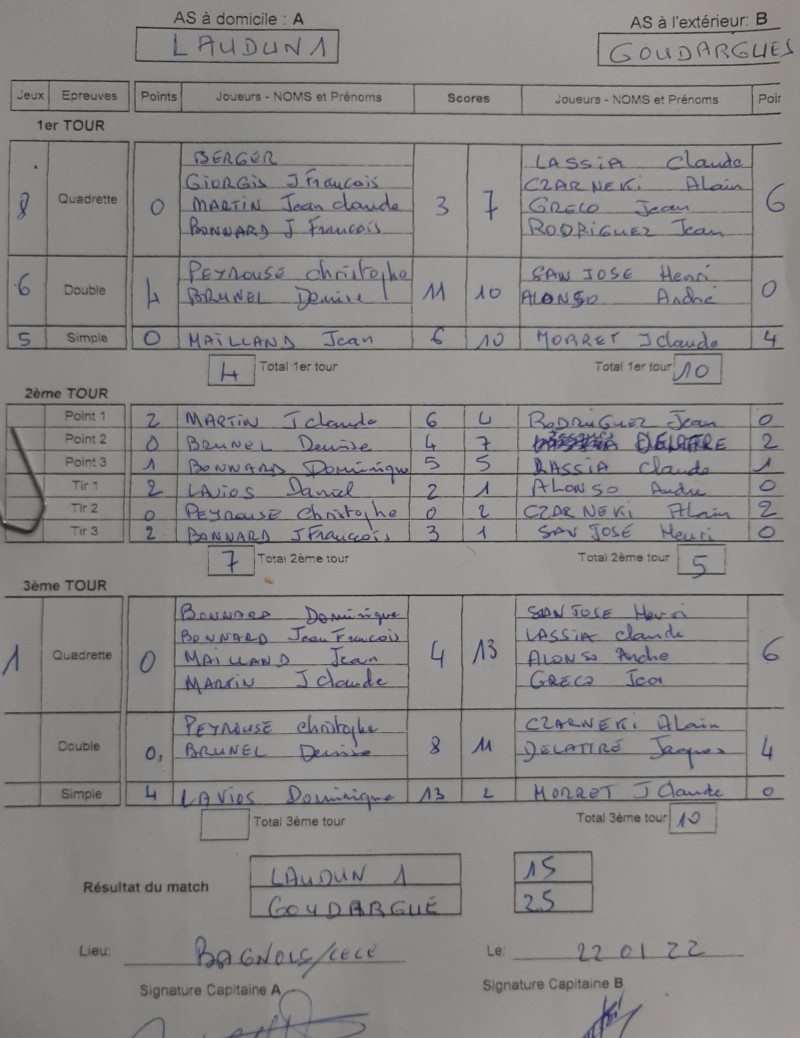 AS à domicile : A AS à l'extérieur: B
LAUDUN 1 GOUDARGUES
Jeux Epreuves Points Joueurs - NOMS et Prénoms Scores Joueurs - NOMS et Prénoms Poir
1er TOUR
BERGER LASSIA Claude
GIORGIS J François CZARNEKI Alain
8 Quadrette 0 MARTIN Jean claude 3 7 GRECO Jean 6
BONNARD J François RODRIGUEZ Jean
PEYROUSE christophe SAN JOSE Henri
6 Double 4 BRUNEL Denise 11 10 ALONSO André 0
5 Simple 0 MAILLAND Jean 6 10 MORRET J claude 4
4 Total 1er tour Total 1er tour 10
2ème TOUR
Point 1 2 MARTIN J claude 6 4 RODRIGUEZ Jean 0
Point 2 0 BRUNEL Denise 4 7 DELATRE 2
Point 3 1 BONNARD Dominique 5 5 LASSIA claude 1
Tir 1 2 LAVIOS Daniel 2 1 ALONSO Andre 0
Tir 2 0 PEYROUSE christophe 0 2 CZARNEKI Alain 2
Tir 3 2 BONNARD J François 3 1 SAN JOSE Henri 0
7 Total 2ème tour Total 2ème tour 5
3ème TOUR
BONNARD Dominique SAN JOSE Henri
BONNARD Jean François LASSIA claude
1 Quadrette 0 MAILLAND Jean 4 13 ALONSO Andre 6
MARTIN J claude GRECO
PEYROUSE christophe CZARNEKI Alain
Double 0, BRUNEL Denise 8 11 DELATTRE Jacques 4
Simple 4 LAVIOS Dominique 13 2 MORRET J Claude 0
Total 3ème tour Total 3ème tour 10
Résultat du match LAUDUN 1 15
GOUDARGUE 25
Lieu: BAGNOLS/CEZE Le: 22 01 22
Signature Capitaine A Signature Capitaine B